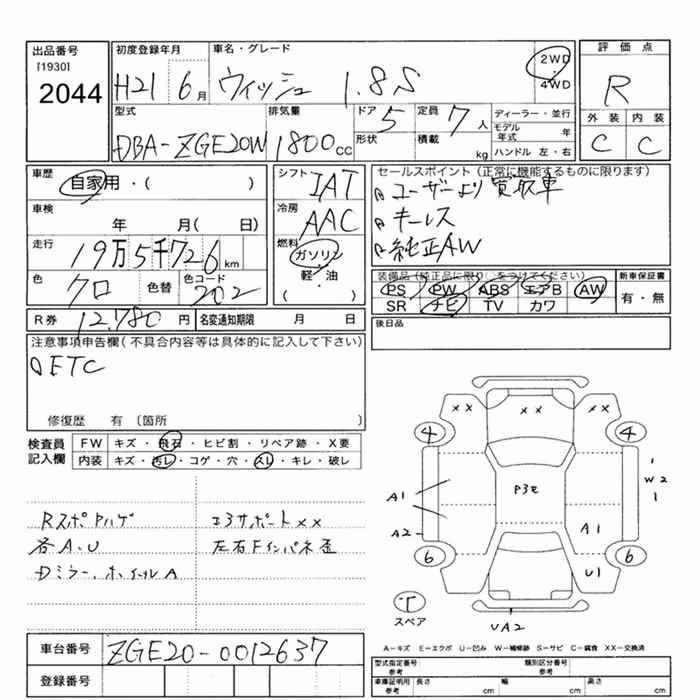 出品番号
[1930]
2044
初度登録年月
H21 6月
車名・グレード
ウィッシュ 1.8S
2WD
・
4WD
評価点
R
外装 内装
C C
型式
DBA-ZGE20W
排気量
1800cc
ドア 5
形状
定員 7人
積載 kg
ディーラー・並行
モデル年式 年
ハンドル 左・右
車歴
自家用・( )
車検
年 月( 日)
走行
19万5千726km
色 クロ
色替
色コード 202
シフト IAT
冷房 AAC
燃料
ガソリン
・
軽・油
( )
セールスポイント(正常に機能するものに限ります)
ユーザーより買取車
キーレス
純正AW
装備品(純正品に限り○をつけてください)
PS PW ABS エアB AW
SR ナビ TV カワ
新車保証書
有・無
R券 12,780円
名変通知期限 月 日
後日品
注意事項申告欄(不具合内容等は具体的に記入して下さい)
ETC
修復歴 有〔箇所
検査員
記入欄
FW キズ・飛石・ヒビ割・リペア跡・X要
内装 キズ・汚レ・コゲ・穴・スレ・キレ・破レ
Rスポアハゲ
各A、U
Dミラー、ホイールA
コアサポートXX
左右Fインパネ歪
XX XX XX
4 4
P3セ
W2
A1
A1
A2
6 6
U1
T
スペア
UA2
A-キズ E-エクボ U-凹み W-補修跡 S-サビ C-腐食 XX-交換済
車台番号
ZGE20-0012637
登録番号
型式指定番号
参考
類別区分番号
参考
車庫証明用
参考
長さ cm
幅 cm
高さ cm